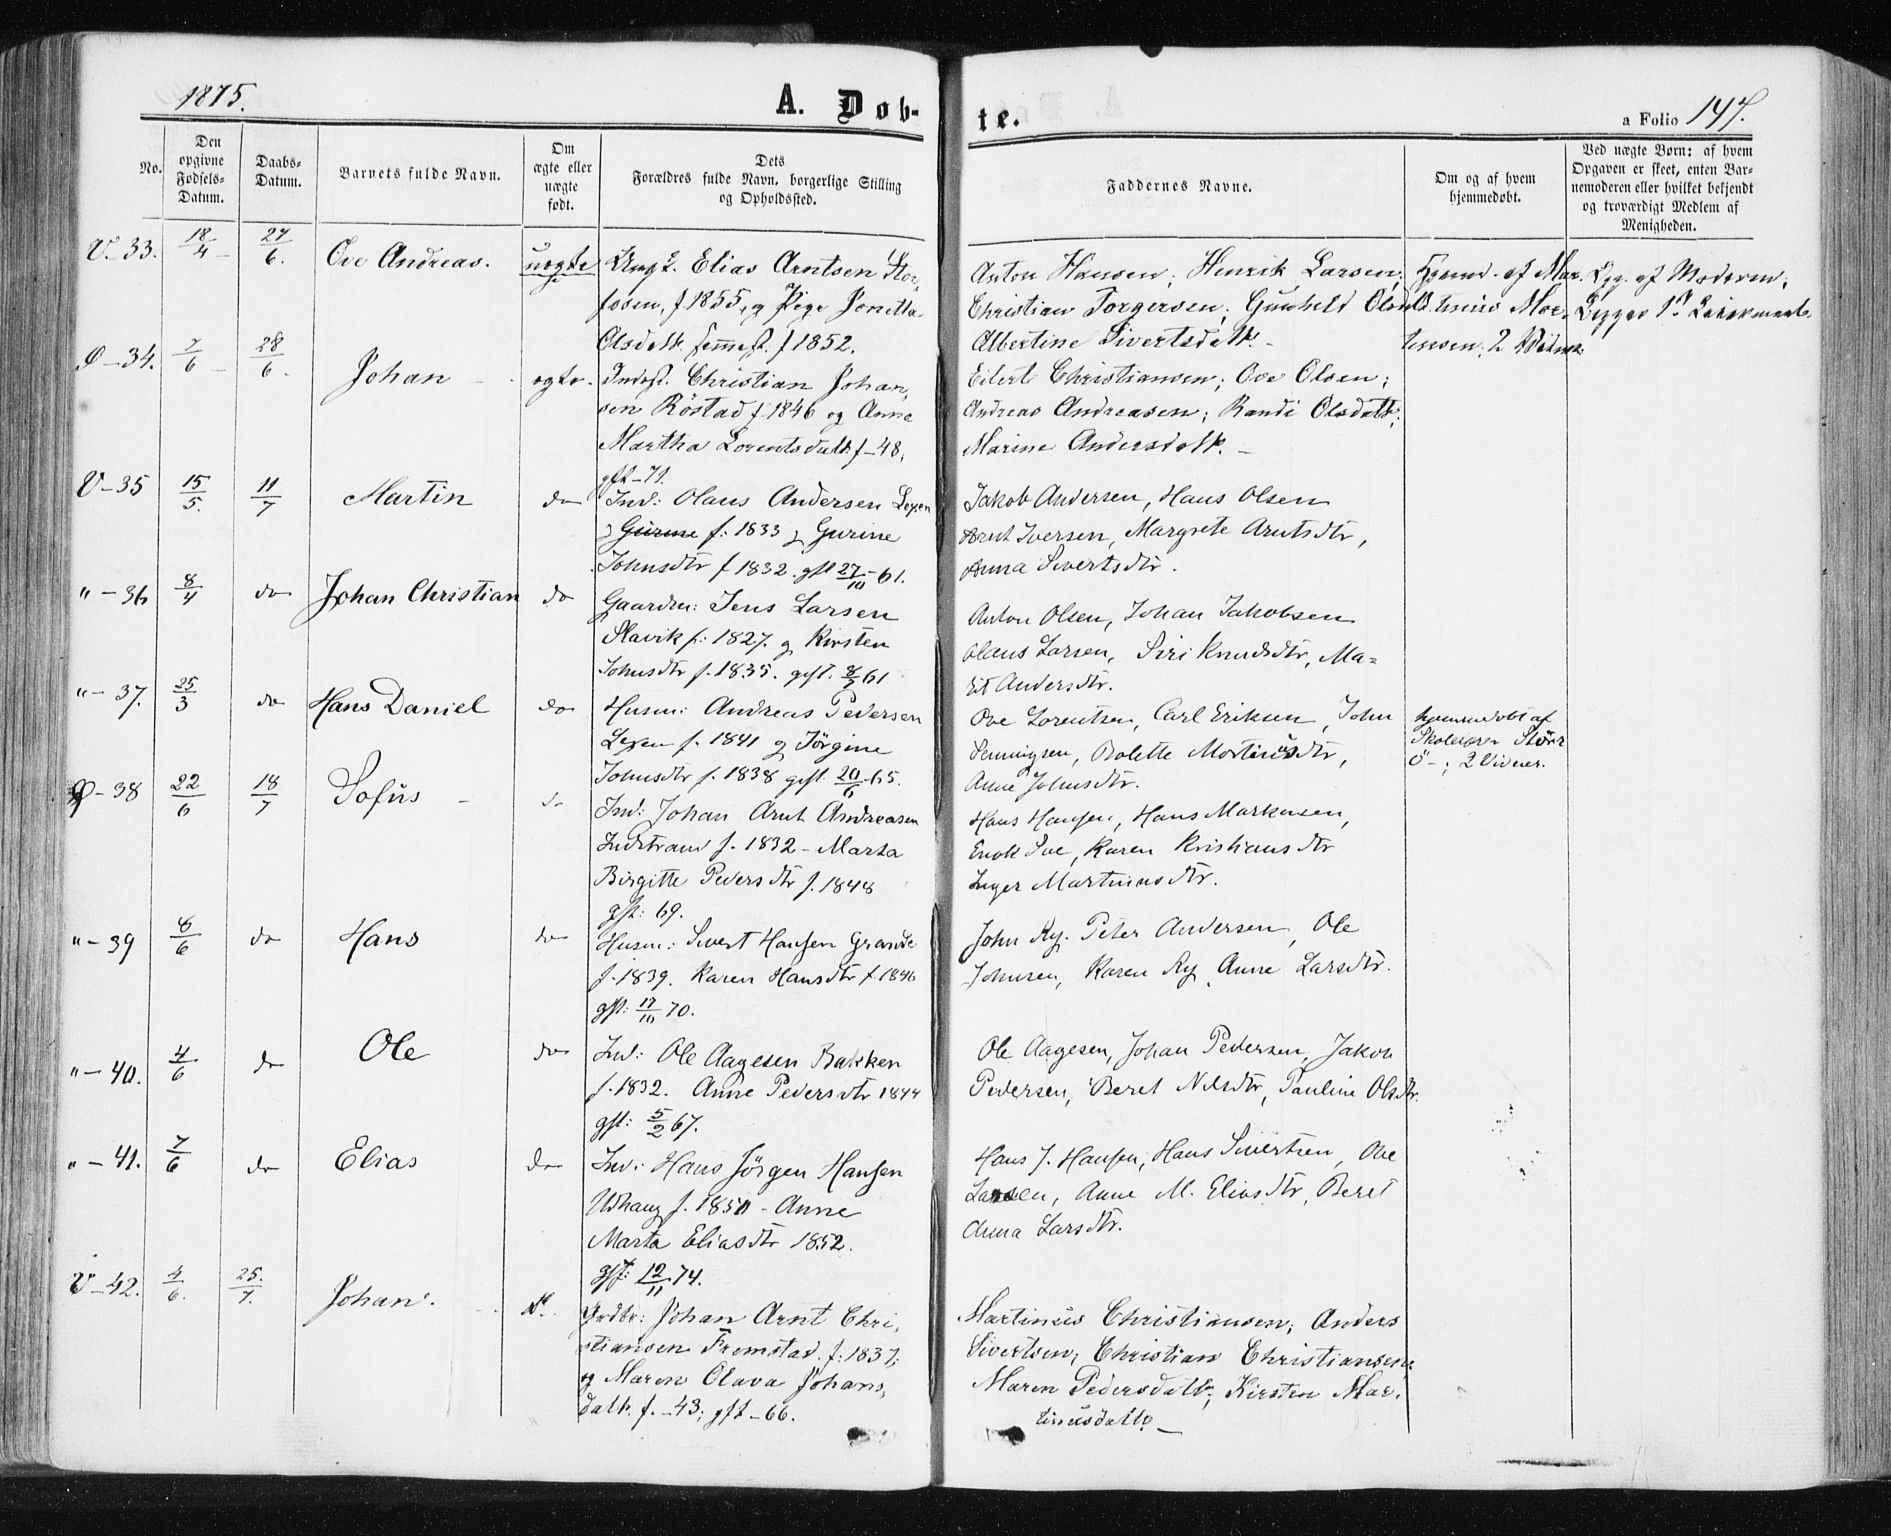 1875.
A. Døb-
te.
a Folio 147.
No.
Den
opgivne
Fødsels-
Datum.
Daabs-
Datum.
Barnets fulde Navn.
Om
ægte eller
uægte
født.
Dets
Forældres fulde Navn, borgerlige Stilling
og Opholdssted.
Faddernes Navne.
Om og af hvem
hjemmedøbt.
Ved uægte Børn: af hvem
Opgaven er skeet, enten Bar-
nemoderen eller hvilket bekjendt
og troværdigt Medlem af
Menigheden.
V-33. 18/4 27/6. Ove Andreas. uægte Ungk. Elias Arntsen Stor-
fosen, f. 1855, og Pige Jonetta
Olsdatt. f. 1852.
Anton Hansen; Henrik Larsen;
Christian Torgersen; Gunhild Olsd.
Albertine Sivertsdatt. -
af Mar-
tinius Mor-
tensen; 2 Vidner
af Moderen;
Ø-34. 7/6 28/6. Johan ægte. Inds. Christian Johan-
sen Röstad f. 1846 og Anne
Martha Lorentsdatt. f-48,
gft-71.
Eilert Christiansen; Ove Olsen;
Andreas Andreasen; Randi Olsdatt.;
Marine Andersdatt. -
V-35 15/5. 11/7 Martin do Ind: Olaus Andersen Lexen
f: 1833 og Gurine
Johnsdtr f 1832. gft 27/10-61.
Jakob Andersen, Hans Olsen
Arnt Iversen, Margrete Arntsdtr,
Anna Sivertsdtr.
"-36 8/4 do Johan Christian do Gaardm: Jens Larsen
Slavik f: 1827. og Kirsten
Johnsdtr f. 1835. gft. 61
Anton Olsen, Johan Jakobsen
Olaus Larsen, Siri Knudsdtr, Ma-
rit Andersdtr.
"-37. 25/3 do Hans Daniel do Husm: Andreas Pedersen
Lexen f. 1841 og Jörgine
Johnsdtr f. 1838 gft. 20/6-65.
Ove Lorentsen, Carl Eriksen, John
Henningsen, Bolette Martinusdtr,
Anne Johnsdtr.
hjemmedøbt af
Skolelærer Stör-
ö-; 2 Vidner.
Ø-38 22/6 18/7 Sofus - do Ind: Johan Arnt Andreasen
Indstrand f. 1832 - Marta
Birgitte Pedersdtr f. 1848
gft: 69.
Hans Hansen, Hans Markusen,
Enok Ive, Karen Kristiansdtr
Inger Martinusdtr.
"-39 6/6 do Hans do Husm: Sivert Hansen Grande
f. 1839. Karen Hansdtr f. 1846
gft: 17/10 70.
John Ry. Peter Andersen, Ole
Johnsen, Karen Ry, Anne Larsdtr.
"-40. 4/6 do Ole do Ind: Ole Aagesen Bakken
f. 1832. Anne Pedersdtr 1844
gft: 5/2 67.
Ole Aagesen, Johan Pedersen, Jakob
Pedersen, Beret Nilsdtr, Pauline Olsdtr.
"-41. 7/6 do Elias do Ind: Hans Jörgen Hansen
Udhaug f. 1850 - Anne
Marta Eliasdtr 1852.
gft: 12/11 74.
Hans J. Hansen, Hans Sivertsen, Ole
Larsen, Anne M. Eliasdtr, Beret
Anna Larsdtr.
V-42. 4/6. 25/7. Johan. Johan Arnt Chri-
stiansen Fremstad. f: 1837;
og Maren Olava Johans-
datt. f. -43; gft-66.
Martinius Christiansen; Anders
Sivertsen; Christian Christiansen;
Maren Pedersdatt.; Kirsten Mar-
tinusdatt. -